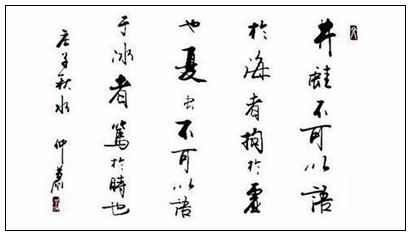 井蛙不可以語
於海者拘於虛
也夏虫不可以語
于冰者篤於時也
庄子秋水 仲萧